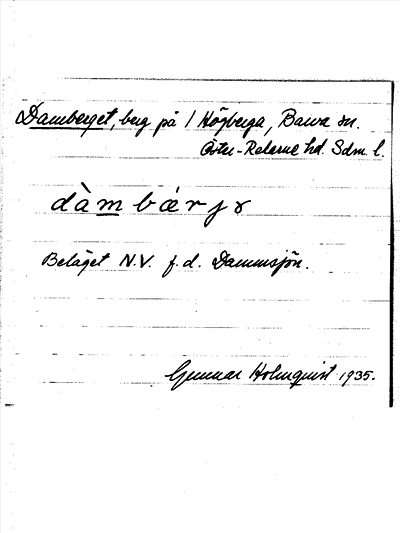 Damberget, berg på 1 Högberga, Barva sn.
Öster-Rekarne hd. Sdm. l.
dàmbærjɤ
Beläget N.V. f.d. Dammsjön.
Gunnar Holmquist 1935.